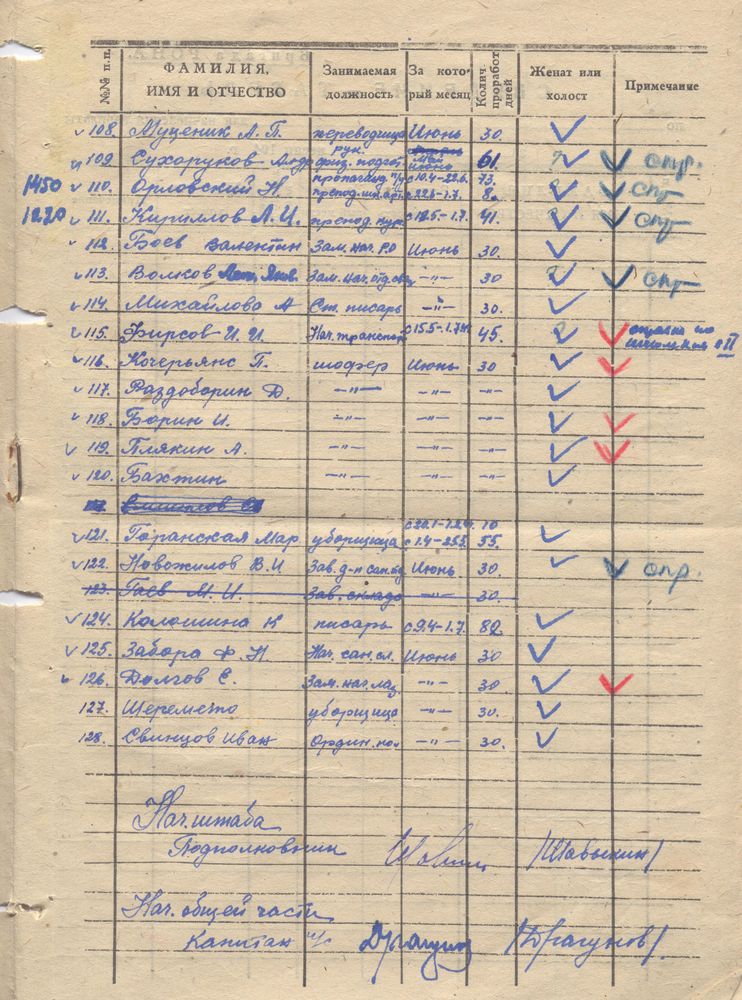 №№ п.п. ФАМИЛИЯ, ИМЯ И ОТЧЕСТВО Занимаемая должность За который месяц Колич. проработ дней Женат или холост Примечание
108. Муценик А. П. переводчица Июнь 30.
109. Сухоруков Андр физ. подгот. рук. Май июнь 61. опр.
1450 110. Орловский Н. пропаганд. с 10.4-22.6. 73. опр
препод. с 22.6-1.7. 8.
1220 111. Кириллов А. И. препод. кур. 1.7. 41. опр
112. Боев Валентин Зам. нач. РО Июнь 30.
113. Волков Зам. нач. отд. -"- 30 опр
114. Михайлова А Ст. писарь -"- 30.
115. Фирсов И. И. Нач. транспор с 15.5-1.7. 45. справка по
116. Кочерьянс П. шофер Июнь 30
117. Раздоборин Д. -"- -"- -"-
118. Борин И. -"- -"- -"-
119. Плякин А. -"- -"- -"-
120. Бахтин -"- -"- -"-
121. Горанская Мар уборщица 10
с 1.4- 55.
122. Новожилов В. И Зав. Июнь 30. опр.
123. Гаев М. И. Зав. склада -"- 30.
124. Колошина К писарь с 9.4-1.7. 82.
125. Забора Ф. Н. Нач. сан. сл. Июнь 30
126. Долгов С. Зам. нач. лаз. -"- 30
127. Шереметто уборщица -"- 30.
128. Свинцов Иван Ордин. -"- 30.
Нач. штаба
Подполковник /Шавыкин/
Нач. общей части
Капитан Драгунов /Драгунов/.